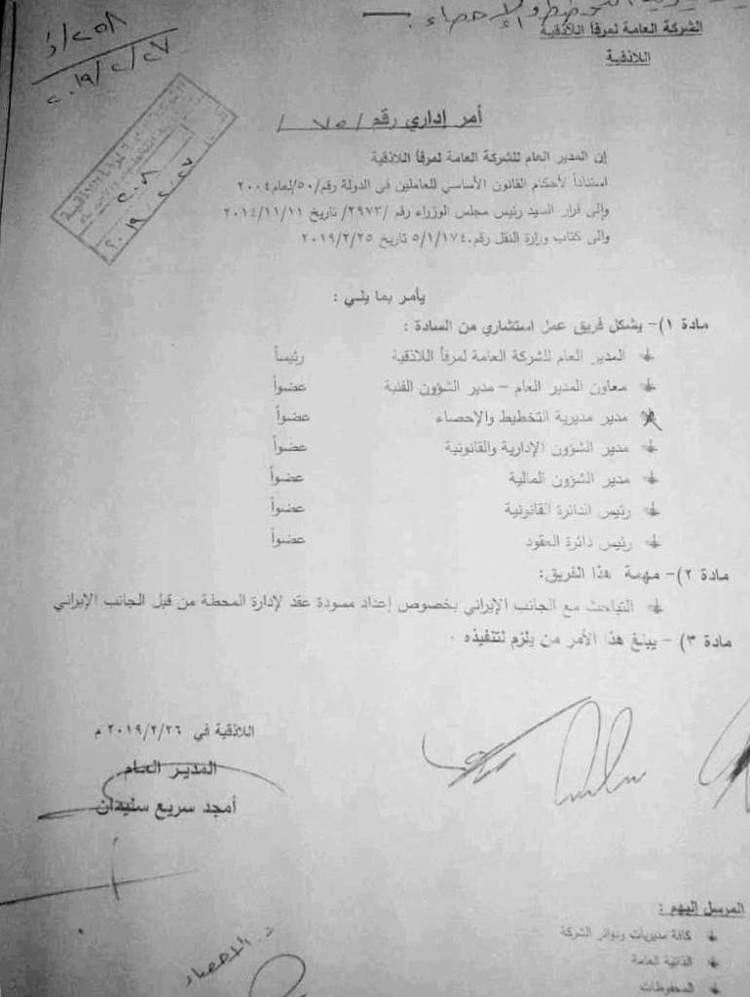 التخطيط والإحصاء
الشركة العامة لمرفأ اللاذقية
اللاذقية
٢٠١٩/٢/٢٧
أمر إداري رقم / ٧٥ /
إن المدير العام للشركة العامة لمرفأ اللاذقية
استناداً لأحكام القانون الأساسي للعاملين في الدولة رقم/٥٠/لعام ٢٠٠٤
وإلى قرار السيد رئيس مجلس الوزراء رقم /٢٩٧٣/ تاريخ ٢٠١٤/١١/١١
والى كتاب وزارة النقل رقم ٥/١/١٧٤ تاريخ ٢٠١٩/٢/٢٥
يأمر بما يلي :
مادة ١)- يشكل فريق عمل استشاري من السادة :
المدير العام للشركة العامة لمرفأ اللاذقية رئيساً
معاون المدير العام – مدير الشؤون الفنية عضواً
مدير مديرية التخطيط والإحصاء عضواً
مدير الشؤون الإدارية والقانونية عضواً
مدير الشؤون المالية عضواً
رئيس الدائرة القانونية عضواً
رئيس دائرة العقود عضواً
مادة ٢)- مهمة هذا الفريق:
التباحث مع الجانب الإيراني بخصوص إعداد مسودة عقد لإدارة المحطة من قبل الجانب الإيراني
مادة ٣) - يبلغ هذا الأمر من يلزم لتنفيذه .
اللاذقية في ٢٠١٩/٢/٢٦ م
المدير العام
أمجد سريع سليمان
المرسل إليهم :
كافة مديريات ودوائر الشركة
الذاتية العامة
المحفوظات
د. الاحصاء